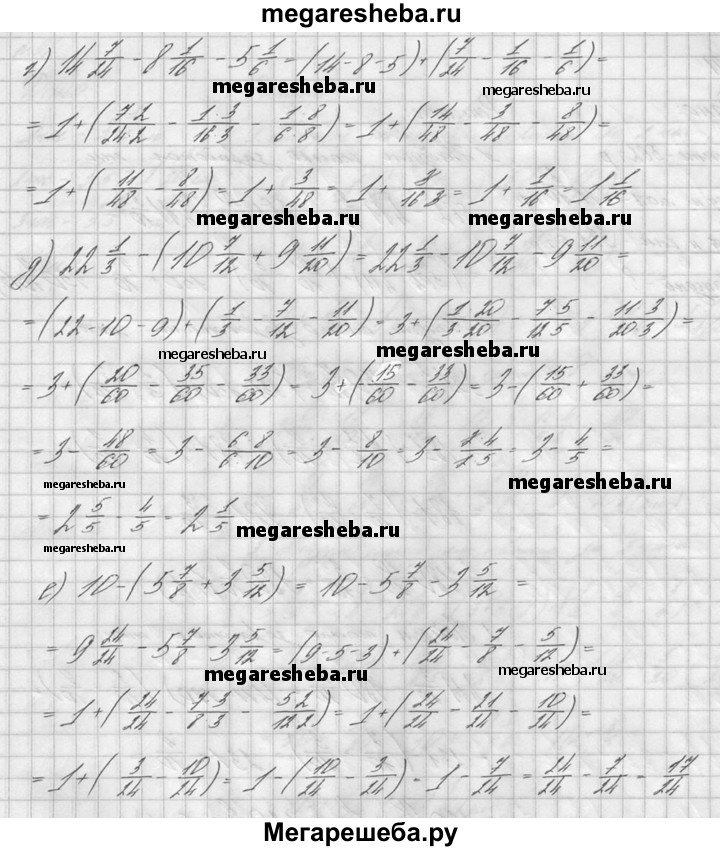 megaresheba.ru
г) 14 7/24 - 8 1/16 - 5 1/6 = (14-8-5) + (7/24 - 1/16 - 1/6) =
megaresheba.ru megaresheba.ru
= 1 + (7·2/24·2 - 1·3/16·3 - 1·8/6·8) = 1 + (14/48 - 3/48 - 8/48) =
= 1 + (11/48 - 8/48) = 1 + 3/48 = 1 + 3/16·3 = 1 + 1/16 = 1 1/16
megaresheba.ru megaresheba.ru
д) 22 1/3 - (10 7/12 + 9 11/20) = 22 1/3 - 10 7/12 - 9 11/20 =
= (22-10-9) + (1/3 - 7/12 - 11/20) = 3 + (1·20/3·20 - 7·5/12·5 - 11·3/20·3) =
megaresheba.ru megaresheba.ru
= 3 + (20/60 - 35/60 - 33/60) = 3 + (-15/60 - 33/60) = 3 - (15/60 + 33/60) =
= 3 - 48/60 = 3 - 6·8/6·10 = 3 - 8/10 = 3 - 2·4/2·5 = 3 - 4/5 =
megaresheba.ru megaresheba.ru
= 2 5/5 - 4/5 = 2 1/5
megaresheba.ru
megaresheba.ru
е) 10 - (5 7/8 + 3 5/12) = 10 - 5 7/8 - 3 5/12 =
= 9 24/24 - 5 7/8 - 3 5/12 = (9-5-3) + (24/24 - 7/8 - 5/12) =
megaresheba.ru megaresheba.ru
= 1 + (24/24 - 7·3/8·3 - 5·2/12·2) = 1 + (24/24 - 21/24 - 10/24) =
= 1 + (3/24 - 10/24) = 1 - (10/24 - 3/24) = 1 - 7/24 = 24/24 - 7/24 = 17/24
megaresheba.ru megaresheba.ru
Мегарешеба.ру